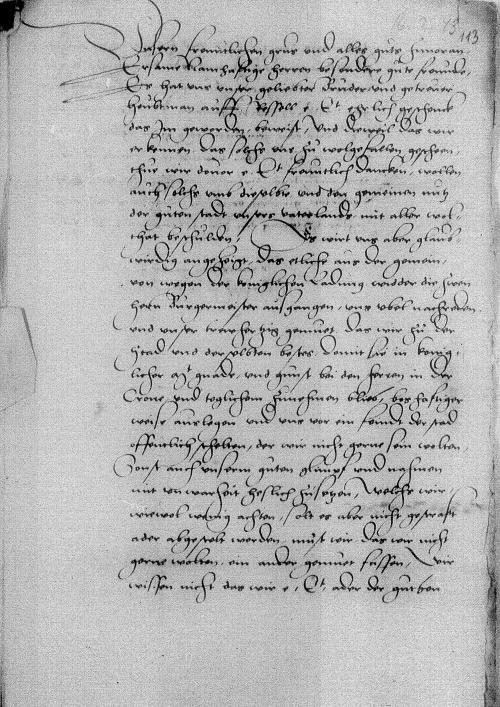 113
Unsern freuntlichen grus und alles guts zuvoran
Ersame Namhafftige herren besondere gute freunde,
Es hat uns unser geliebter Bruder und getreuer
heubtman auff Ressell e. Et. ehrlich geschenck
das Im geworden, beweist, Und dieweil das wir
erkennen das solchs uns zu wolgefallen geschen,
thun wir dovor e. Et. freuntlich dancken, wollen
auch solchs umb dieselbte und den gemeinen nutz
der guten stadt unsers vaterlands mit aller wol
that beschulden, Es wirt uns aber glaub
wirdig angezeigt, das etliche aus der gemein,
von wegen der koniglichen Ladung widder die zwen
hern Burgermeister ausgangen, uns ubel nachreden
und unser trewhertzig gemuet, das wir zu der
stad und derselbten bestes domit sie in konig
licher Mt gnade, und gunst bei den herren in der
Crone, und teglichem zunehmen blieb, boshafftiger
weise auslegen und uns vor ein feindt der stad
offentlich schelten, der wir nicht gerne sein wolten,
Sonst auch unserm guten glimpf und nahmen
mit unwarheit heslich zusetzen, Welchs wir
wiewol wenig achten, solt es aber nicht gestrafft
ader abgestelt werden, must wir das wir nicht
gerne wolten, ein ander gemuet fassen, Wir
wissen nicht das wir e. Et. ader der gutten